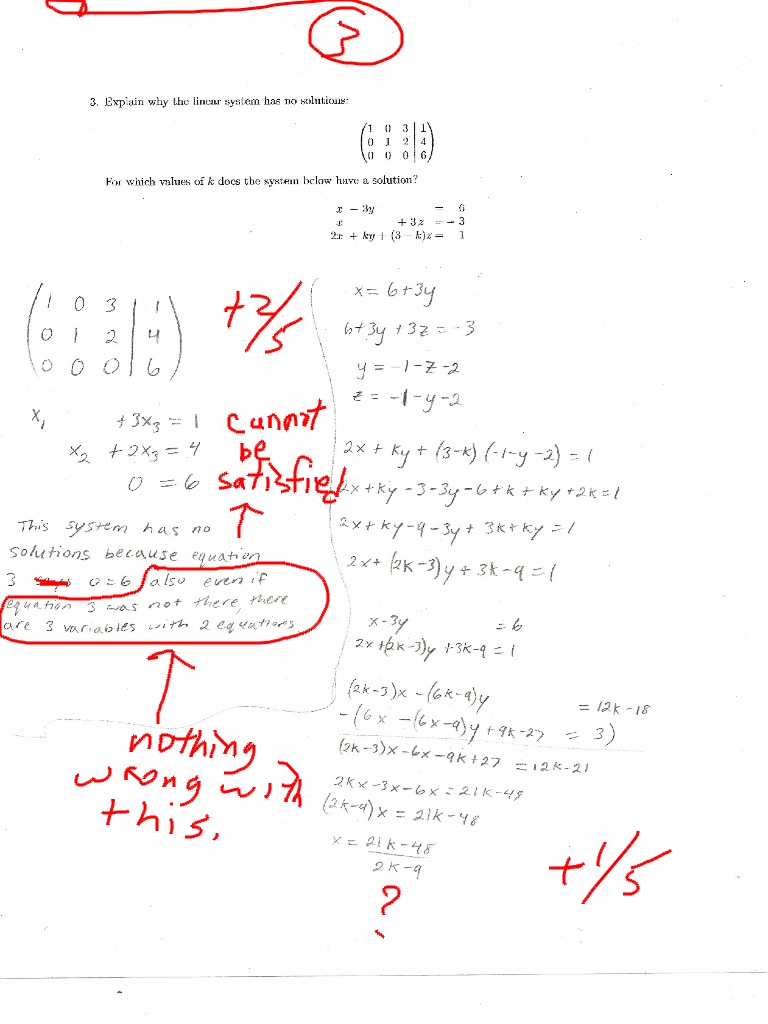 3
3. Explain why the linear system has no solutions:
1 0 3 | 1
0 1 2 | 4
0 0 0 | 6
For which values of k does the system below have a solution?
x − 3y = 6
x + 3z = − 3
2x + ky + (3 − k)z = 1
1 0 3 | 1
0 1 2 | 4
0 0 0 | 6
+2/5
x₁ + 3x₃ = 1
x₂ + 2x₃ = 4
0 = 6
cannot
be
satisfied
This system has no
solutions because equation
3 0=6 also even if
equation 3 was not there, there
are 3 variables with 2 equations
nothing
wrong with
this.
x = 6+3y
6+3y+3z = -3
y = -1-z-2
z = -1-y-2
2x + ky + (3-k)(-1-y-2) = 1
2x+ky-3-3y-6+k+ky+2k=1
2x+ky-9-3y+3k+ky=1
2x+(2k-3)y+3k-9=1
x-3y =6
2x+(2k-3)y+3k-9=1
(2k-3)x-(6k-9)y = 12k-18
-(6x-(6x-9)y+9k-27 = 3)
(2k-3)x-6x-9k+27 = 12k-21
2kx-3x-6x=21k-48
(2k-9)x = 21k-48
x = 21k-48
2k-9
?
+1/5